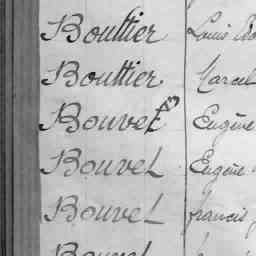 Bouttier Louis
Bouttier Marcel
Bouvet Eugène
Bouvet Eugène
Bouvet francis